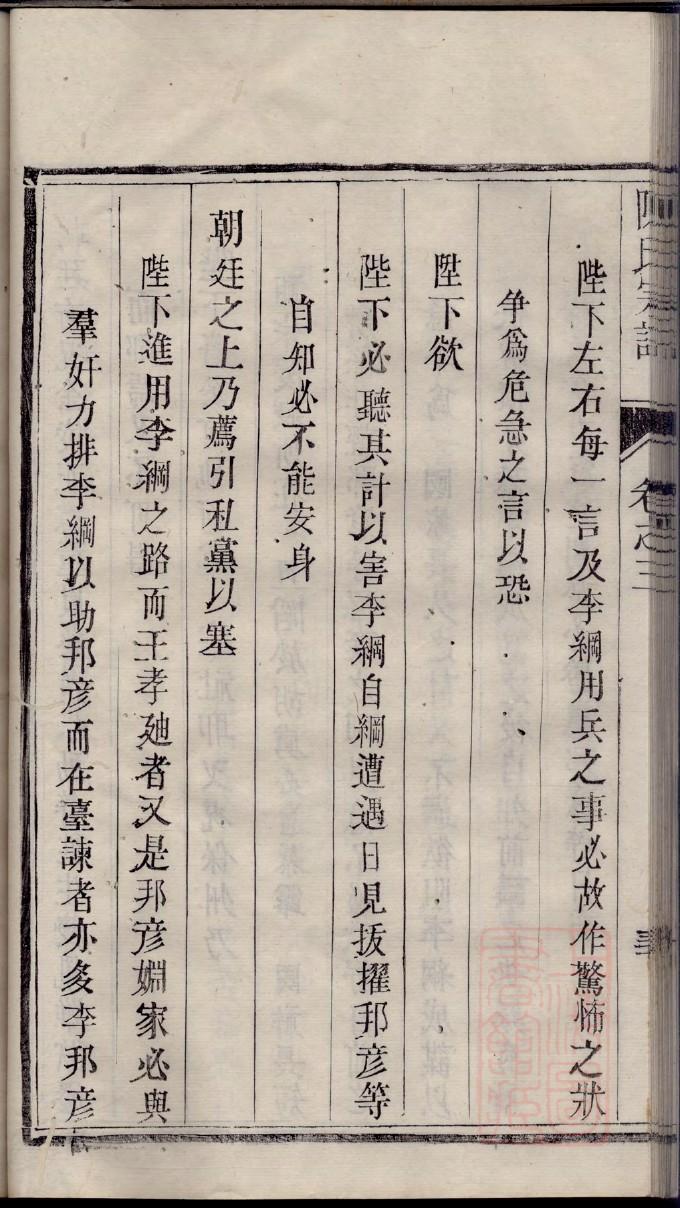 陳氏宗譜
卷之三
陛下左右每一言及李綱用兵之事必故作驚怖之狀
争爲危急之言以恐
陛下欲
陛下必聽其計以害李綱自綱遭遇日見拔擢邦彦等
自知必不能安身
朝廷之上乃薦引私黨以塞
陛下進用李綱之路而王孝廸者又是邦彦婣家必與
羣奸力排李綱以助邦彦而在臺諫者亦多李邦彦